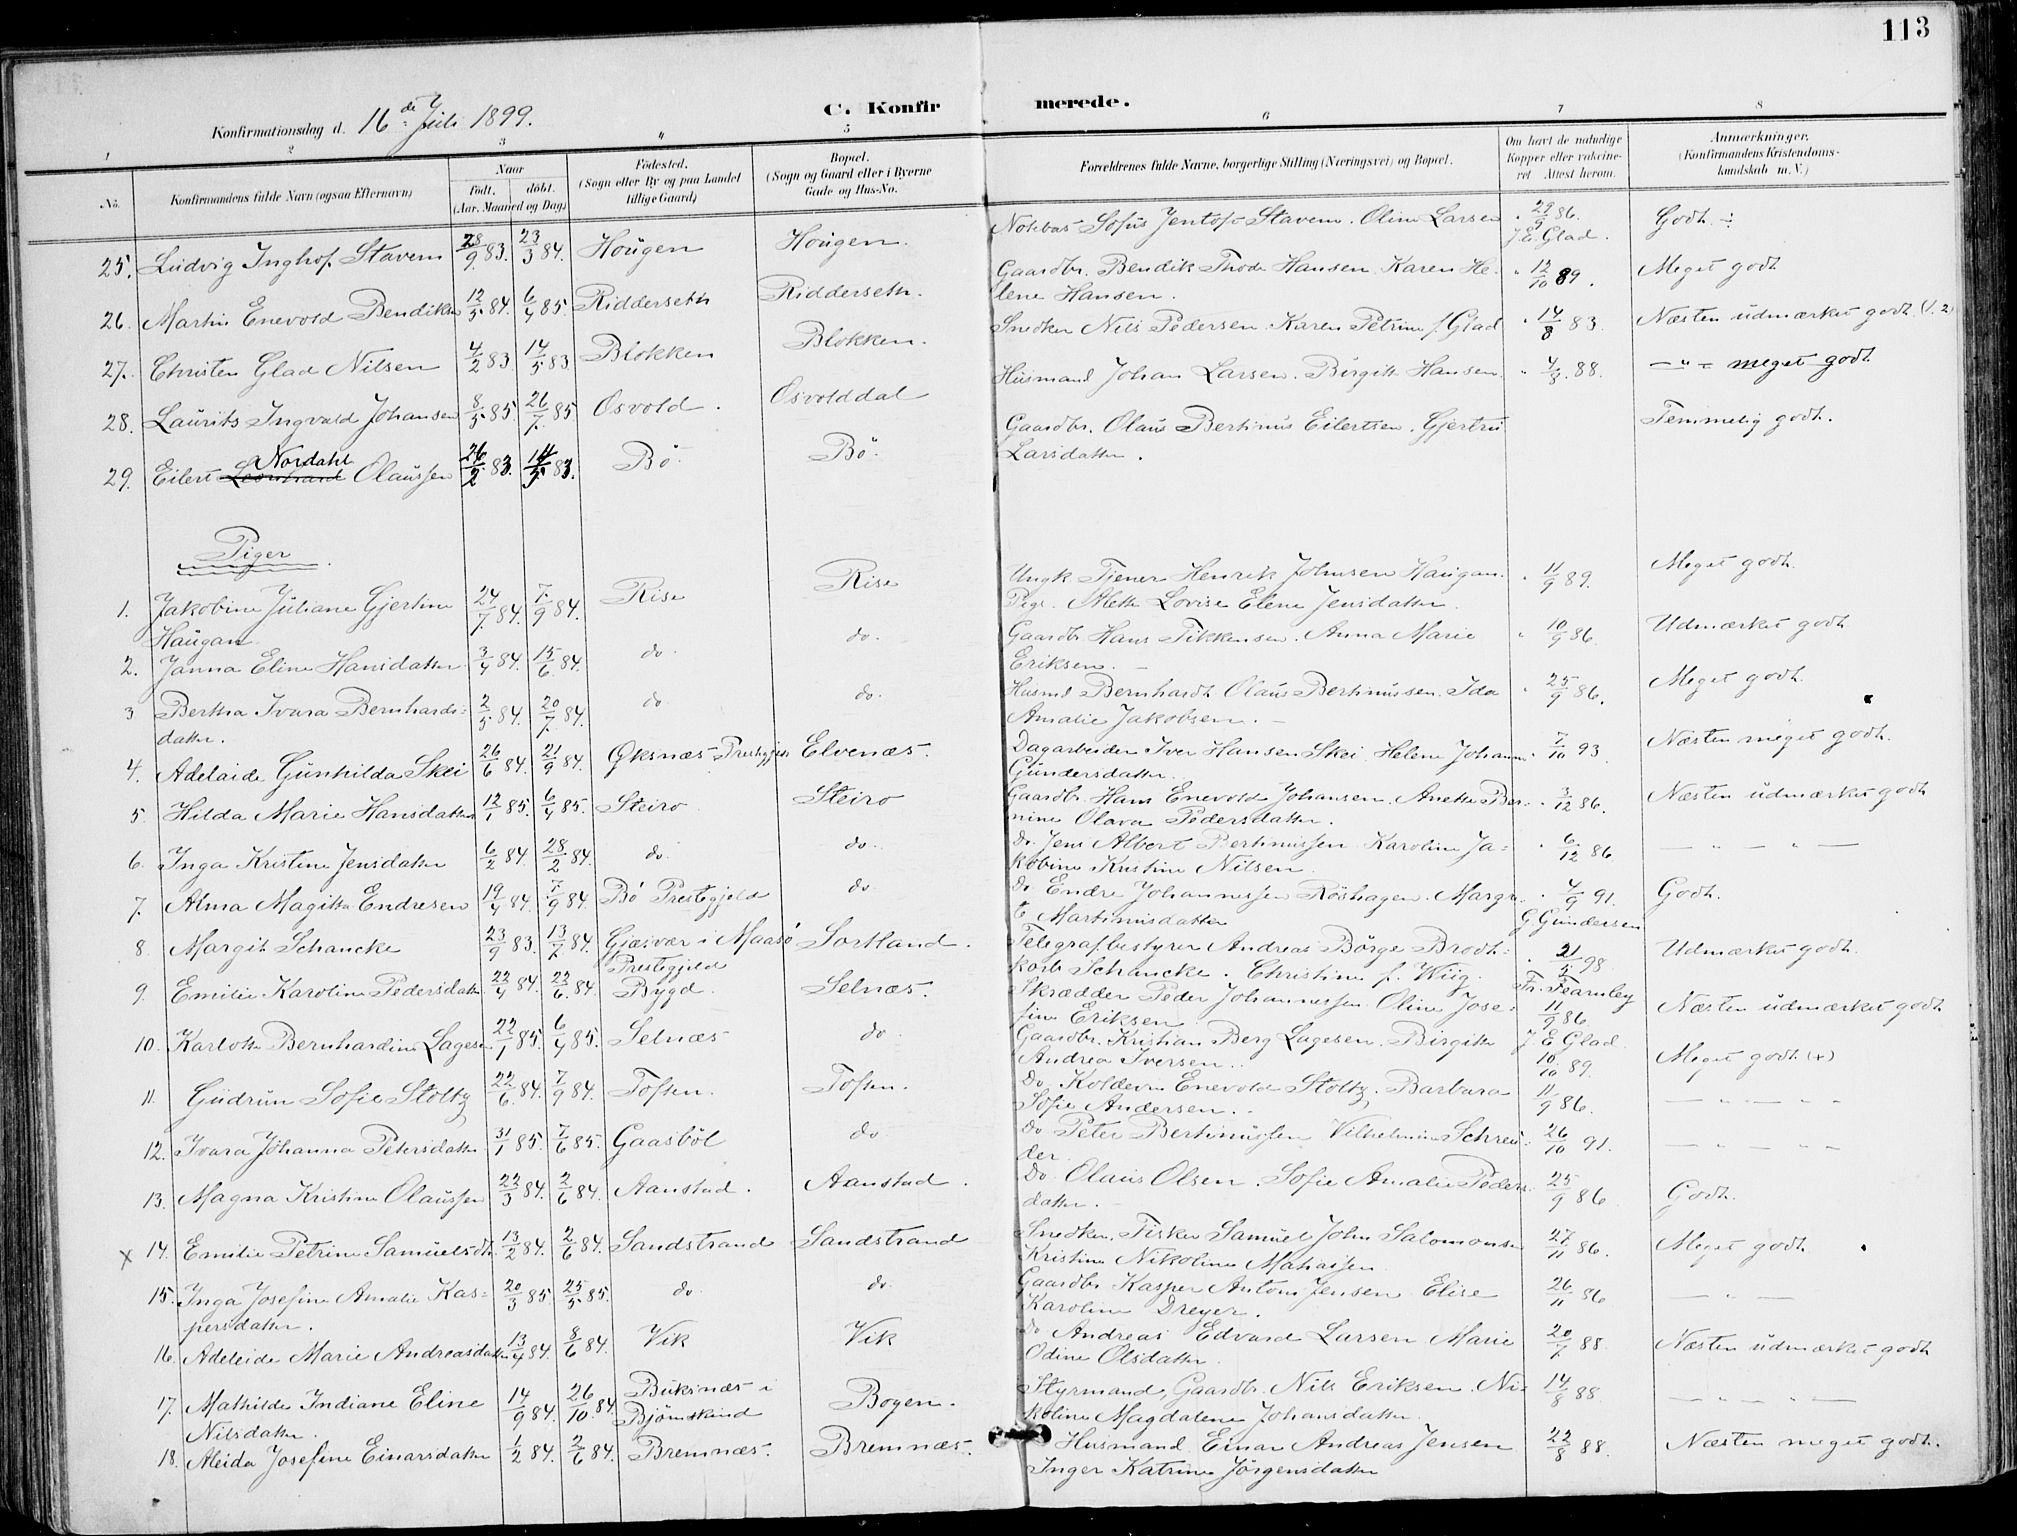 113
C. Konfirmerede.
Konfirmationsdag d. 16de Juli 1899.
1 2 3 4 5 6 7 8
No. Konfirmandens fulde Navn (ogsaa Efternavn) Naar født, døbt. (Aar, Maaned og Dag) Fødested. (Sogn eller By og paa Landet tillige Gaard) Bopæl. (Sogn og Gaard eller i Byerne Gade og Hus-No. Forældrenes fulde Navne, borgerlige Stilling (Næringsvei) og Bopæl. Om havt de naturlige Kopper eller vakcineret. Attest herom. Anmærkninger. (Konfirmandens Kristendomskundskab m. V.)
25. Ludvig Inghof. Stavem 28/9 83. 23/3 84. Hougen Hougen. Sofus Jentoft Stavem. Oline Larsen 29/9 86. J. E. Glad. Godt.
26. Martin Enevold Bendiks 12/5 84. 6/4 85 Ridderseth Ridderseth. Gaardbr. Bendik Thode Hansen. Karen He-
lene Hansen. 12/10 89. Meget godt
27. Christen Glad Nilsen 4/2 83 14/5 83 Blokken Blokken. Snedker Nils Pedersen. Karen Petrine f. Glad 14/8 83. Næsten udmærket godt (1. 2)
28. Laurits Ingvald Johansen 8/5 85 26/7 85 Osvold. Osvolddal Husmand Johan Larsen. Birgitte Hansen. 4/8. 88. — " — meget godt
29. Eilert Nordahl Olaussen 26/2 83. 14/5 83. Bø. Bø. Gaardbr. Olaus Bertinus Eilertsen. Gjertru
Larsdatter. Temmelig godt.
Piger
1. Jakobine Juliane Gjertine
Haugan 24/7 84. 7/9 84. Rise Rise Ungk. Tjener Henrik Johnsen Haugan.
Pige. Alette Lovise Elene Jensdatter. 11/9 89. Meget godt.
2. Janna Eline Hansdatter 3/4 84. 15/6 84. do. do. Gaardbr. Hans Tikkensen. Anna Marie
Eriksen. — 10/9 86. Udmærket godt
3 Bertha Ivara Bernhards-
datter. 2/5 84. 20/7 84. do do. Husmd Bernhardt Olaus Bertinussen. Ida
Amalie Jakobsen. — 25/9 86. Meget godt.
4. Adelaide Gunhilda Skei 26/6 84. 21/9 84. Øksnæs Prestegjeld Elvenæs. Dagarbeider Iver Hansen Skei. Helene Johanna
Gundersdatter. 7/10 93. Næsten meget godt.
5. Hilda Marie Hansdatter 12/1 85. 6/4 85. Steiro Steiro Gaardbr. Hans Enevold Johansen. Anette Ber-
nine Olava Pedersdatter. 3/12 86. Næsten udmærket godt
6. Inga Kristine Jensdatter 6/2 84. 28/2 84. do. do. do. Jens Albert Bertinussen. Karoline Ja-
kobine Kristine Nilsen. 6/12 86 — " — " —
7. Alma Magitta Endresen 19/4 84. 7/9 84. Bø Prestegjeld do. do Endre Johannessen Røshagen. Margre-
t Martinusdatter 4/9 91. G Gundersen Godt.
8 Margit Schancke 23/9 83. 13/7 84. Gjæsvær i Maasø
Prestegjeld Sortland. Telegrafbestyrer Andreas Børge Brodt-
korb Schancke. Christine f. Wiig. 21/5 98 Fr. Fearnley Udmærket godt.
9. Emilie Karoline Pedersdatter 22/4 84. 22/6 84. Bygd. Selnæs. Skrædder Peder Johannessen. Oline Jose-
fine Eriksen 11/9 86. J. E. Glad. Næsten udmærket godt
10. Karlotte Bernhardine Lagesen 22/1 85. 6/4 85. Selnæs do Gaardbr. Kristian Berg Lagesen. Birgitte
Andrea Iversen. 10/10 89. Meget godt (+)
11. Gudrun Sofie Stoltz 22/6. 84. 7/9 84. Toften. Toften. do. Koldevin Enevold Stoltz. Barbara
Sofie Andersen. 11/9 86. — " — " "
12. Ivara Johanna Petersdatter 31/1 85. 7/6 85. Gaasbøl do do Peter Bertinussen Vilhelmine Schreu-
der. 26/10 91. — " — " "
13. Magna Kristine Olaussen 22/3 84. 2/6 84. Aanstad. Aanstad. do. Olaus Olsen. Sofie Amalie Peders-
datter. 25/9 86 Godt.
x 14. Emilie Petrine Samuelsdtr. 13/2 84. 2/6 84. Sandstrand Sandstrand Snedker, Fisker Samuel John Salomonsen
Kristine Nikoline Mathisen. 27/11 86. Meget godt.
15. Inga Josefine Amalie Kas-
persdatter. 20/3 85. 25/5 85. do. do. Gaardbr Kasper Antoni Jensen Elise
Karoline Dreyer. 26/11 86 — " —
16. Adeleide Marie Andreasdatter 13/4 84. 8/6 84. Vik Vik do Andreas Edvard Larsen Marie
Odine Olsdatter. 20/7 88. Næsten udmærket godt
17. Mathilde Indiane Eline
Nilsdatter. 14/9 84. 26/10. 84. Buksnæs i
Bjørnskind Bogen. Styrmand, Gaardbr. Nils Eriksen. Ni-
koline Magdalene Johansdatter. 14/8 88 — " — " —
18. Aleida Josefine Einarsdatter 1/2 84. 2/6 84. Bremnæs. Bremnæs. Husmand Einar Andreas Jensen
Inger Katrine Jørgensdatter 22/8 88. Næsten meget godt.